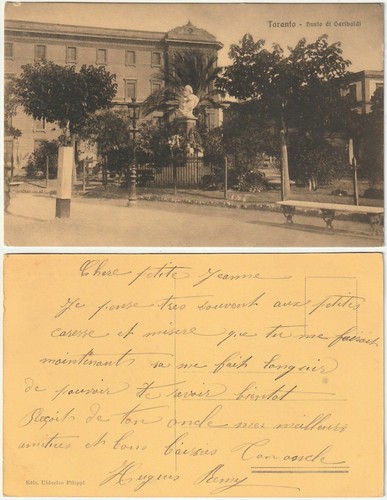 Taranto - Busto di Garibaldi
Chere petite Jeanne
Je pense tres souvent aux petites
caresse et misere que tu me faisait
maintenant sa me fait longuir
de pouvoir te revoir bientot
Reçoit de ton oncle mes meilleurs
amities et bons baisers Ton oncle
Hugues Remy
Edit. Uldarico Filippi